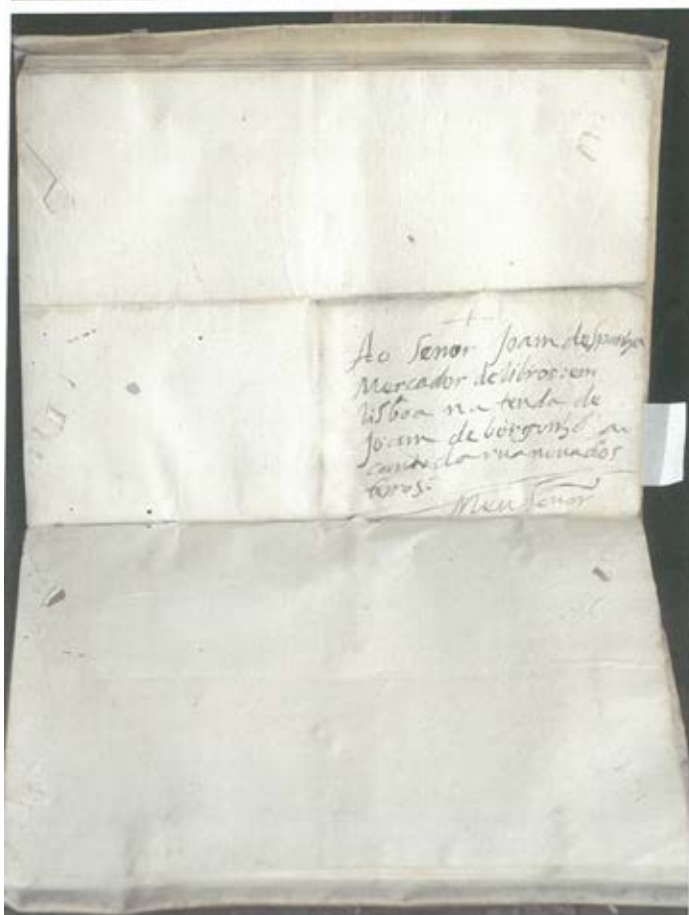 Ao Senor Joam despanha
Mercador de libros: em
lisboa na tenda de
Joam de borgonho ao
canto da rua nova dos
ferros:
Meu Senor